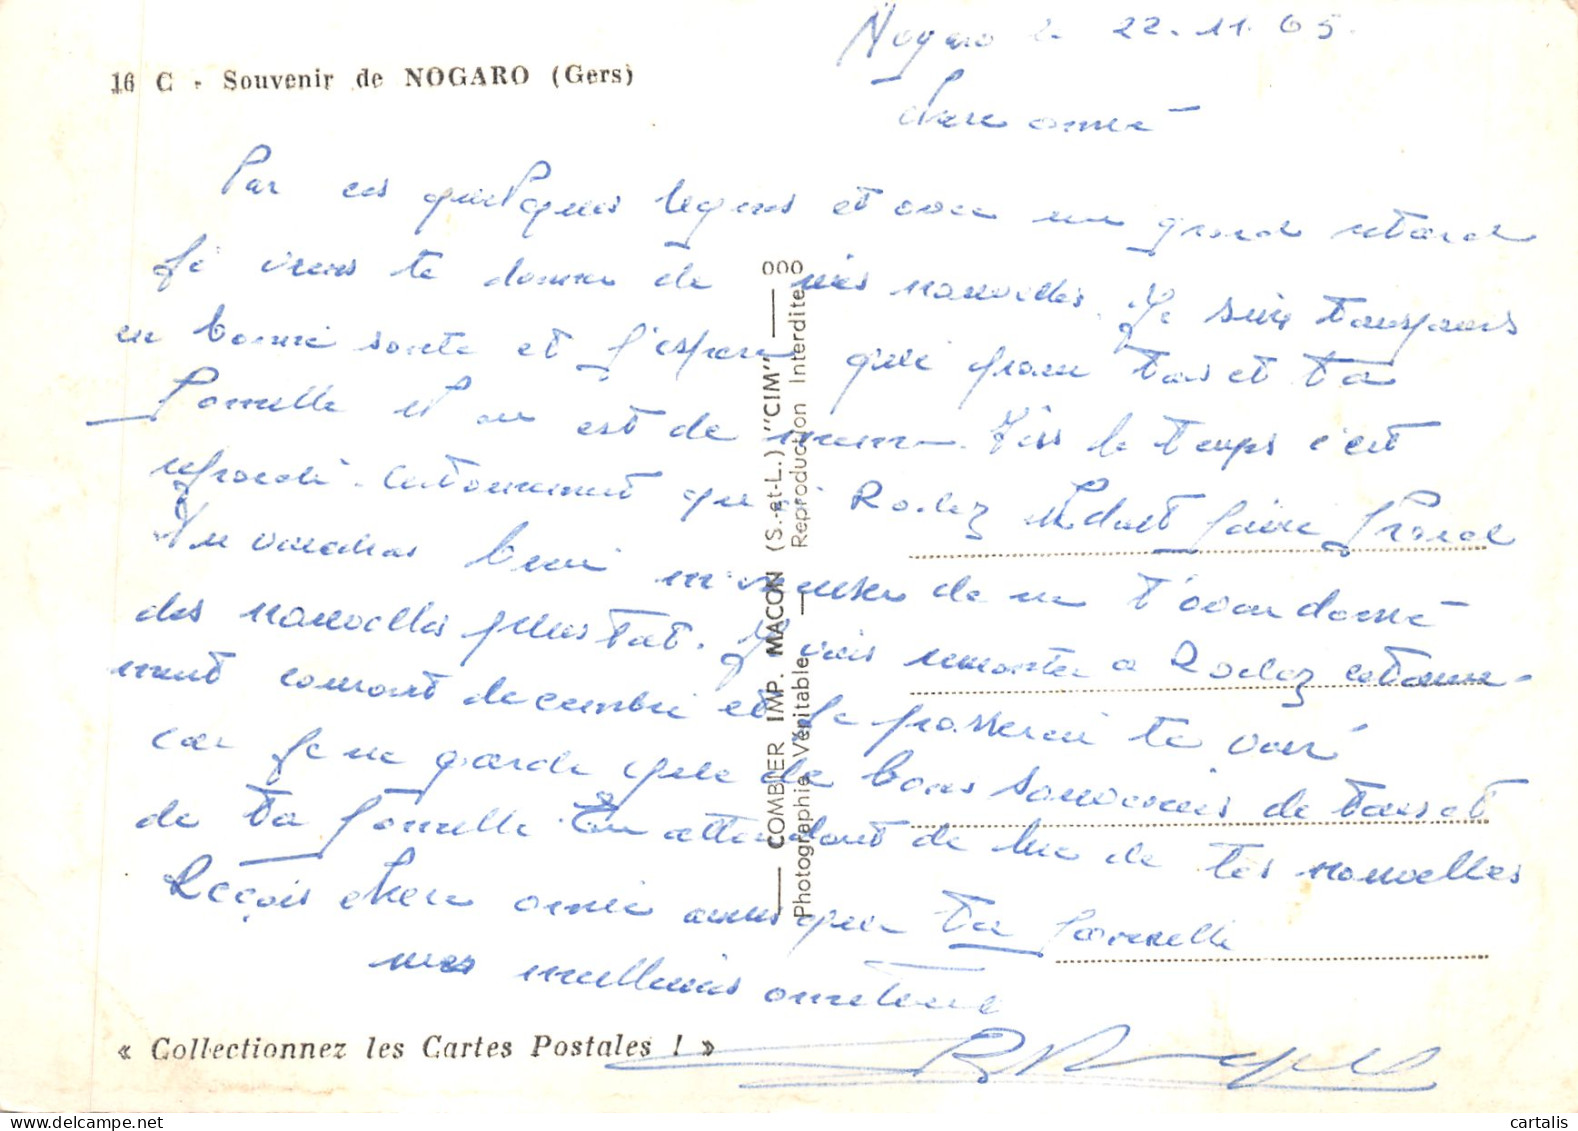 Nogaro le 22.11.65.
16 C - Souvenir de NOGARO (Gers)
chere amie
Par ces quelques lignes et avec un grand retard
Je viens te donner de mes nouvelles. Je suis toujours
en bonne sante et j'espere que pour toi et ta
famille il en est de meme. Ici le temps c'est
refroidi. certainement que Rodez il doit faire froid
Tu voudras bien m'excuser de ne t'avoir donné
des nouvelles plus tot. Je vais remonter a Rodez
courant decembre et Je passerai te voir
car Je ne garde que de bons souvenirs de toi et
de ta famille. En attendant de lire de tes nouvelles
Reçois chere amie ainsi que ta famille
mes meilleurs amities
« Collectionnez les Cartes Postales ! »
COMBIER IMP. MACON (S.-et-L.) "CIM"
Photographie Véritable — Reproduction Interdite
cartalis